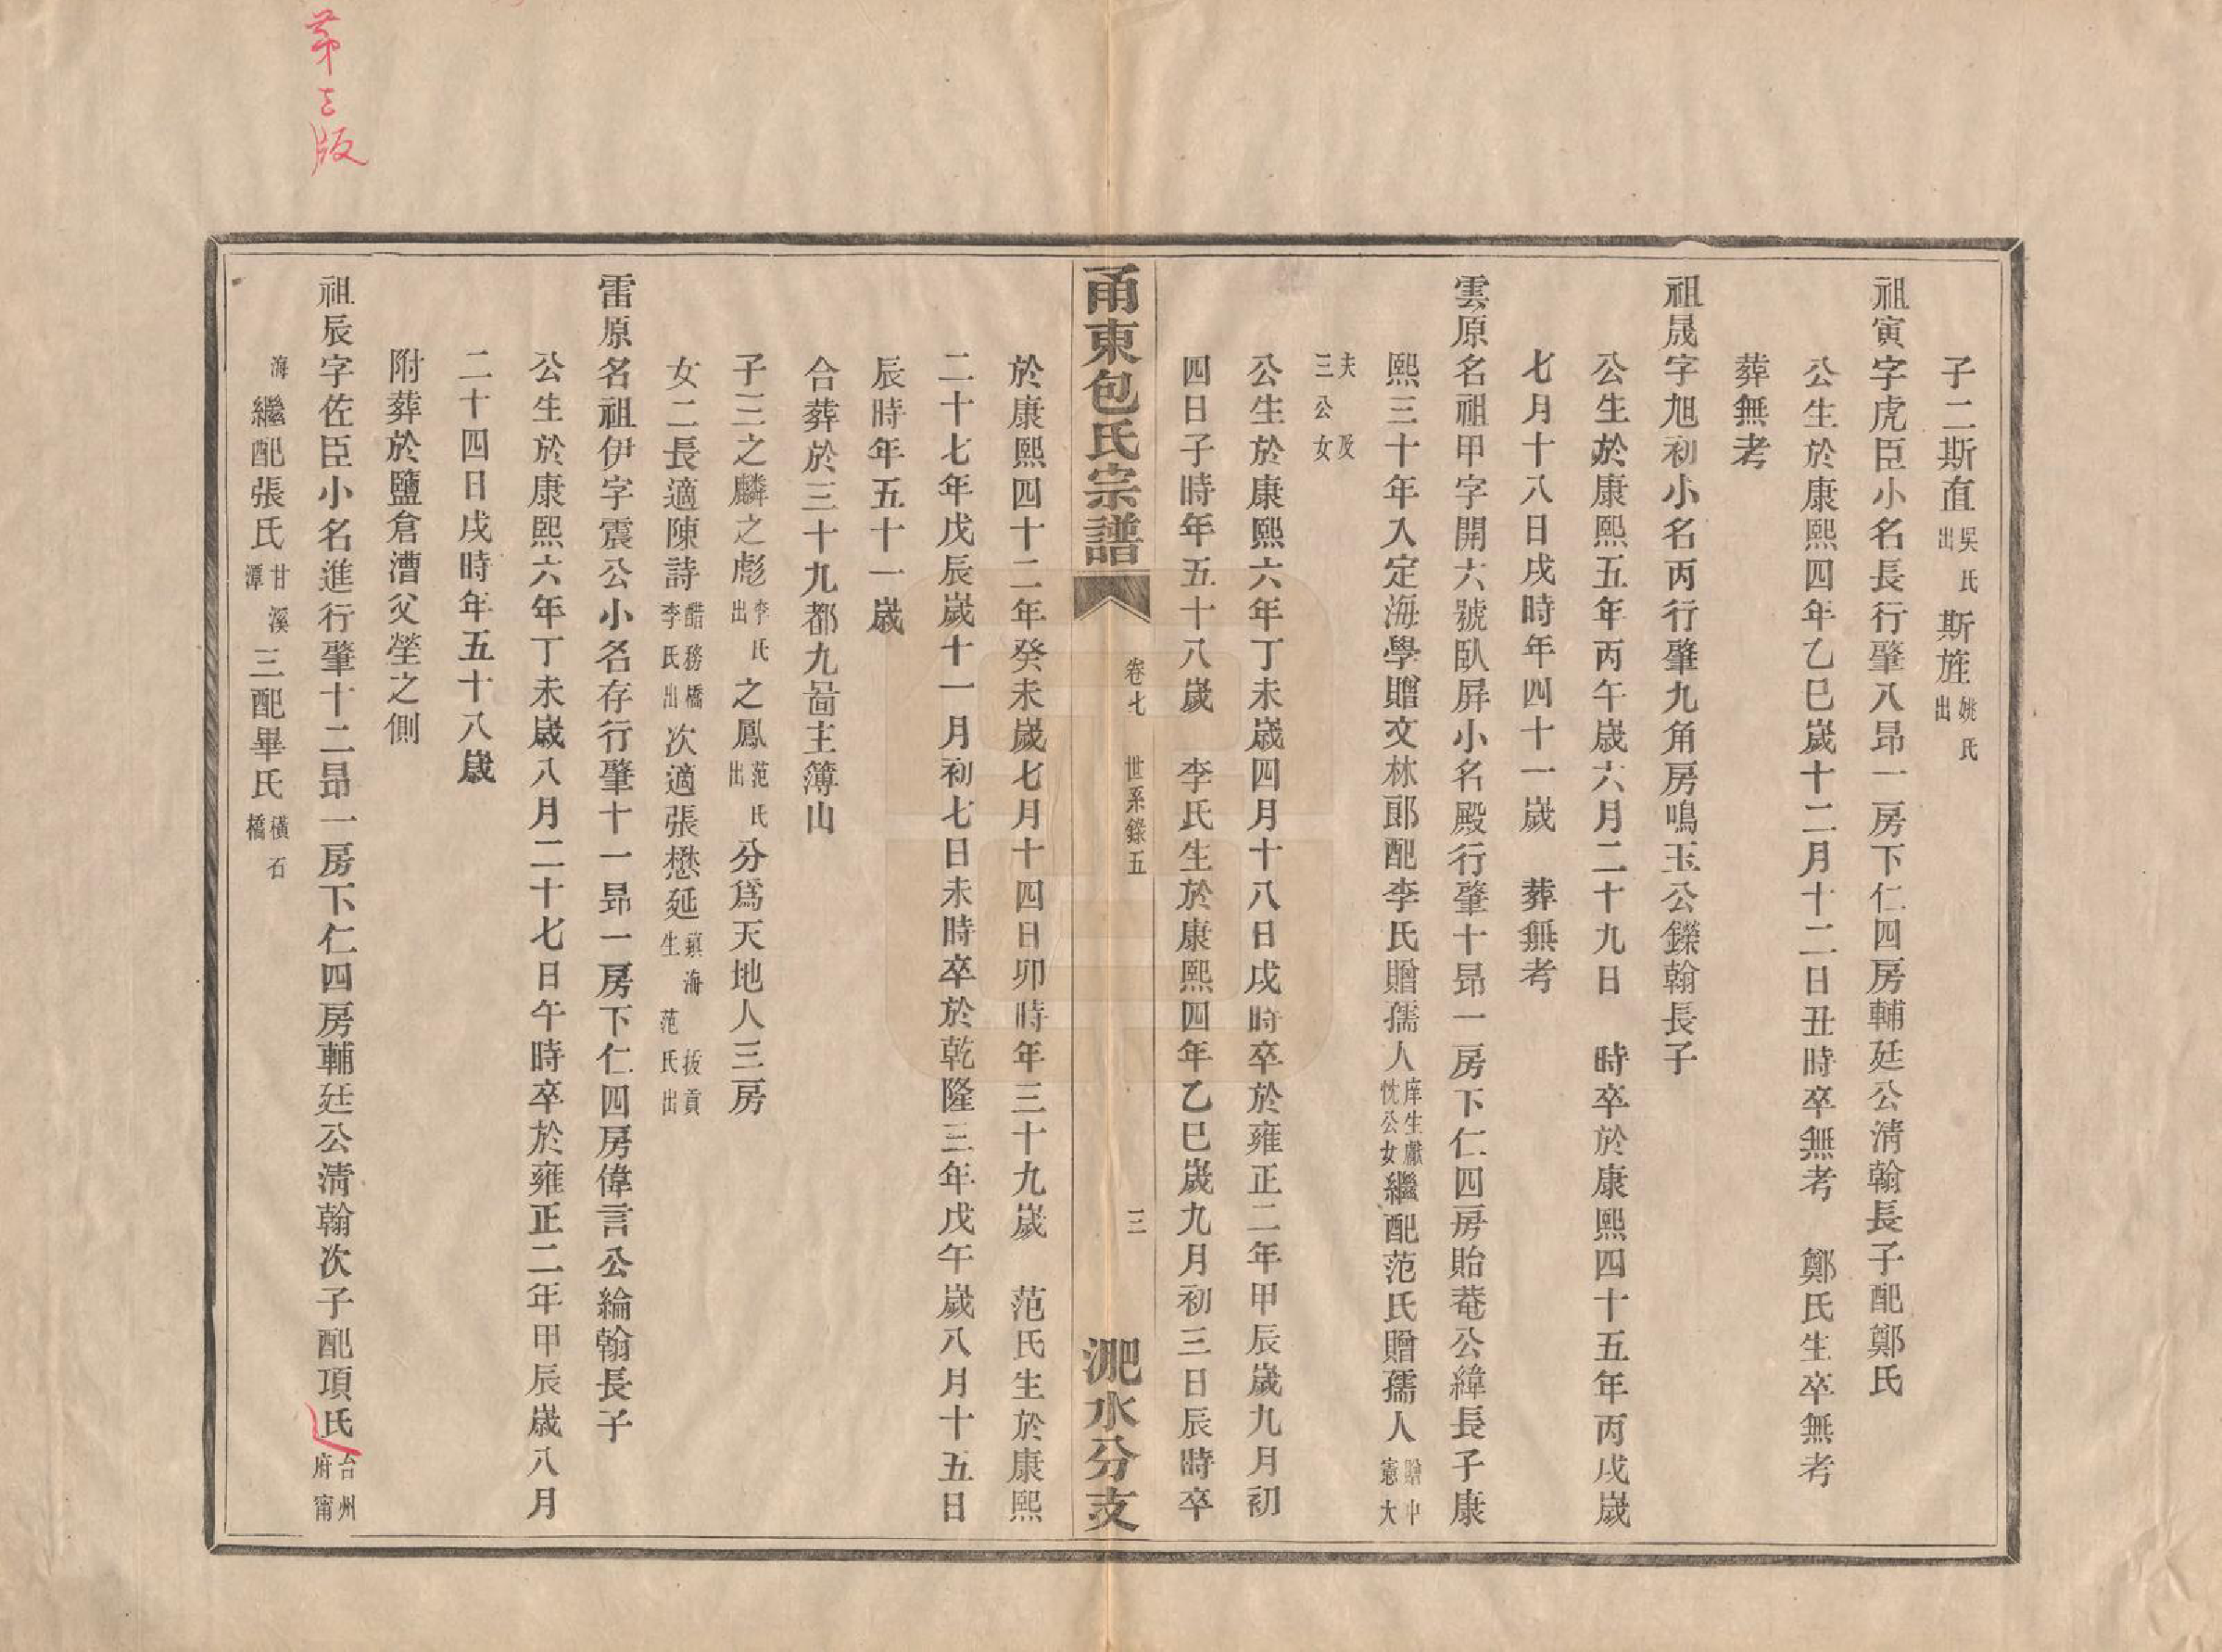 第三版
子二斯直吳氏出斯旌姚氏出
祖寅字虎臣小名長行肇八昂一房下仁四房輔廷公淸翰長子配鄭氏
公生於康熙四年乙巳歲十二月十二日丑時卒無考　鄭氏生卒無考
葬無考
祖晟字旭初小名丙行肇九角房鳴玉公鑅翰長子
公生於康熙五年丙午歲六月二十九日　時卒於康熙四十五年丙戌歲
七月十八日戌時年四十一歲　葬無考
雲原名祖甲字開六號臥屛小名殿行肇十昂一房下仁四房貽菴公緯長子康
熙三十年入定海學贈文林郎配李氏贈孺人庠生獻忱公女繼配范氏贈孺人贈中憲大
夫及三公女
公生於康熙六年丁未歲四月十八日戌時卒於雍正二年甲辰歲九月初
四日子時年五十八歲　李氏生於康熙四年乙巳歲九月初三日辰時卒
甬東包氏宗譜　卷七　世系錄五　三　淝水分支
於康熙四十二年癸未歲七月十四日卯時年三十九歲　范氏生於康熙
二十七年戊辰歲十一月初七日未時卒於乾隆三年戊午歲八月十五日
辰時年五十一歲
合葬於三十九都九啚主簿山
子三之麟之彪李氏出之鳳范氏出分爲天地人三房
女二長適陳詩醋務橋李氏出次適張懋延鎭海拔貢生范氏出
雷原名祖伊字震公小名存行肇十一昂一房下仁四房偉言公綸翰長子
公生於康熙六年丁未歲八月二十七日午時卒於雍正二年甲辰歲八月
二十四日戌時年五十八歲
附葬於鹽倉漕父塋之側
祖辰字佐臣小名進行肇十二昂一房下仁四房輔廷公淸翰次子配項氏台州府甯
海繼配張氏甘溪潭三配畢氏橫石橋